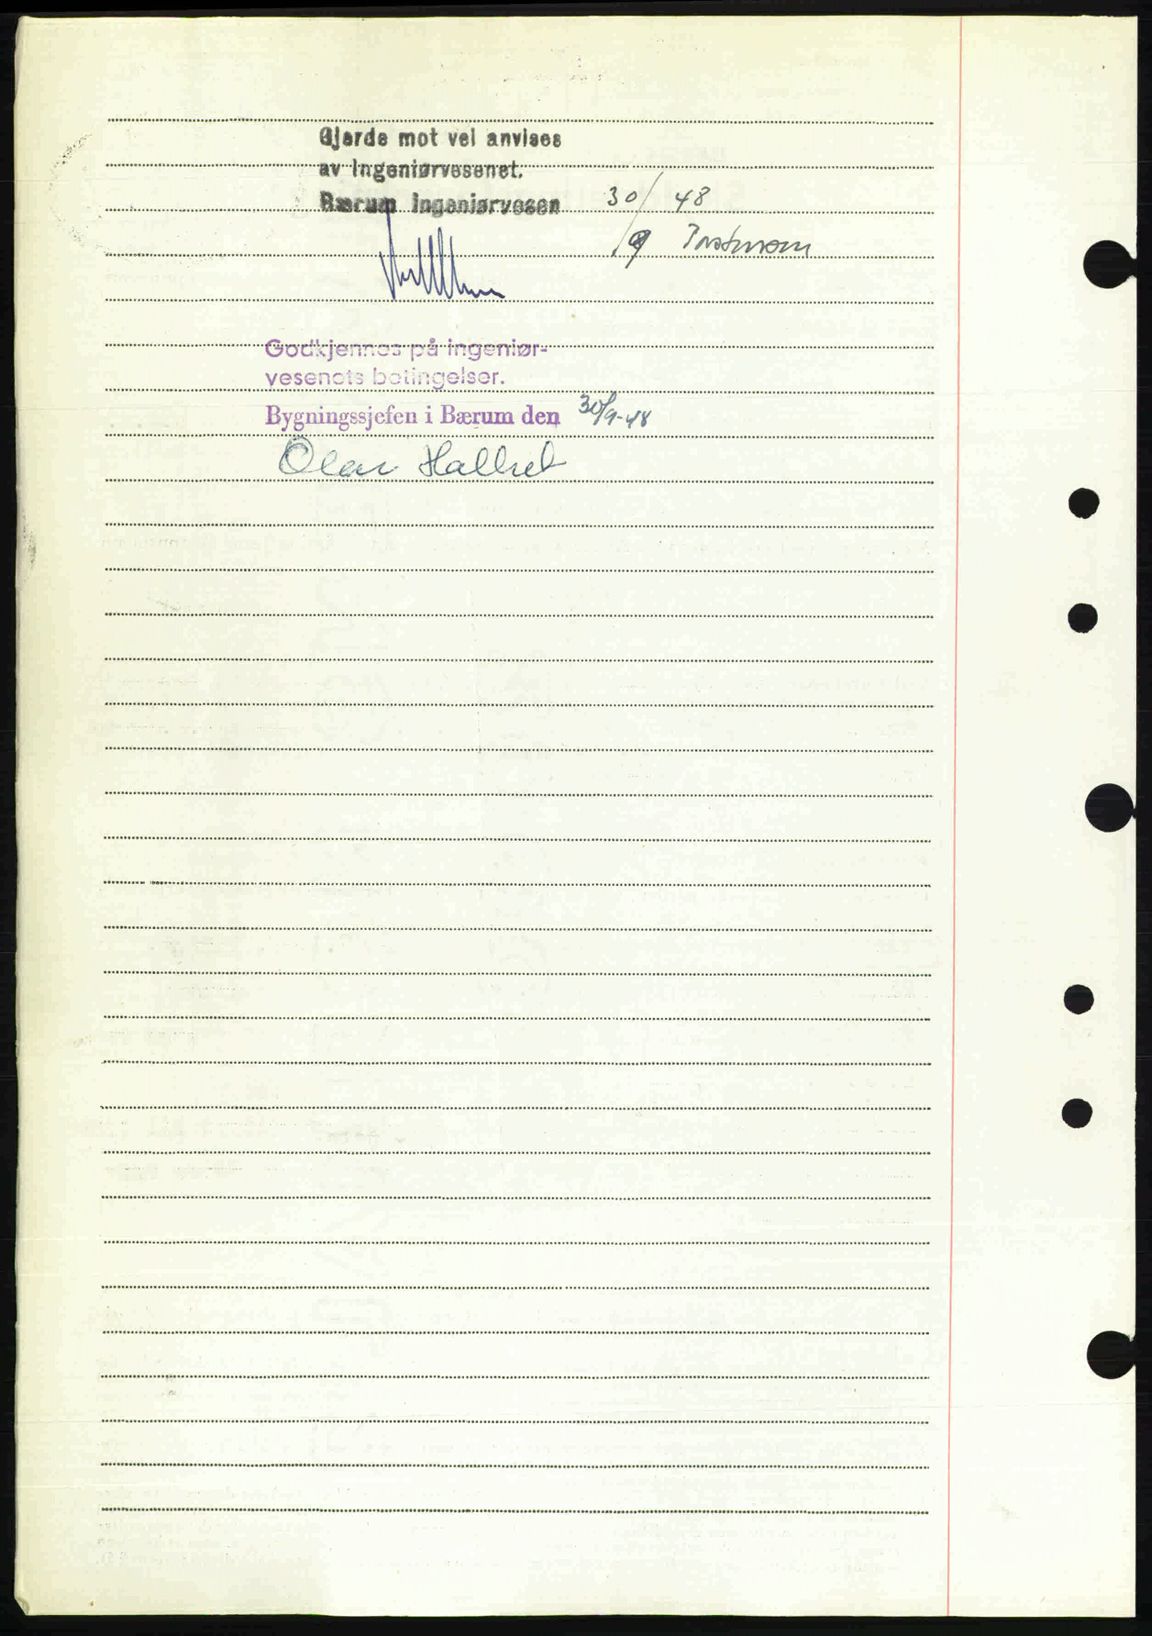 Gjerde mot vei anvises
av Ingeniørvesenet.
Bærum Ingeniørvesen 30/9 48
Godkjennes på ingeniør-
vesenets betingelser.
Bygningssjefen i Bærum den 30/9-48
Olav Hallset